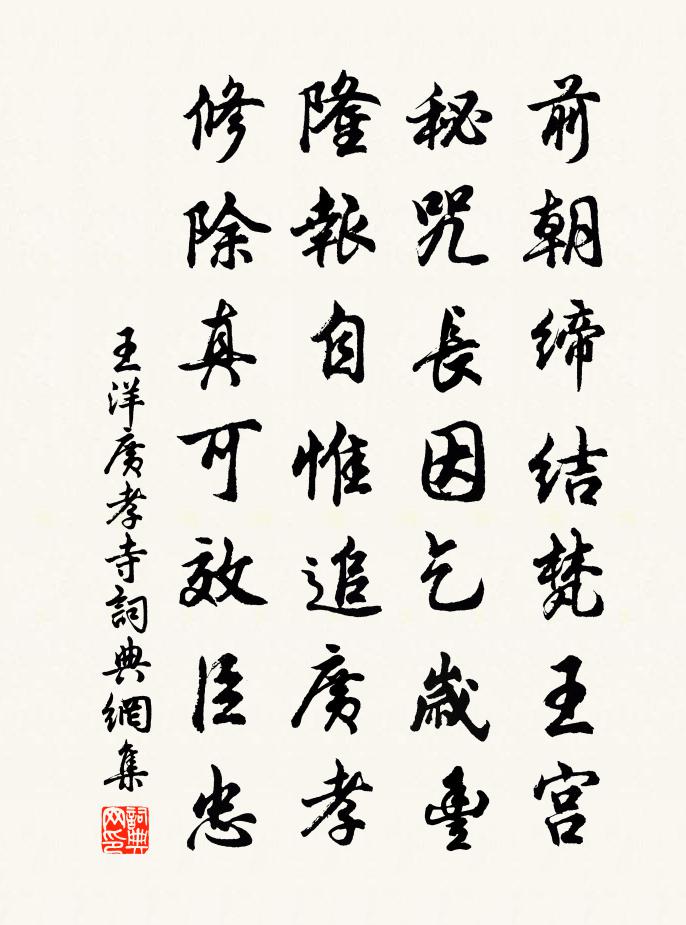 前朝締結梵王宮
秘咒長因乞歲豐
隆報自惟追廣孝
修除真可效臣忠
王洋廣孝寺詞典網集
詞典網印